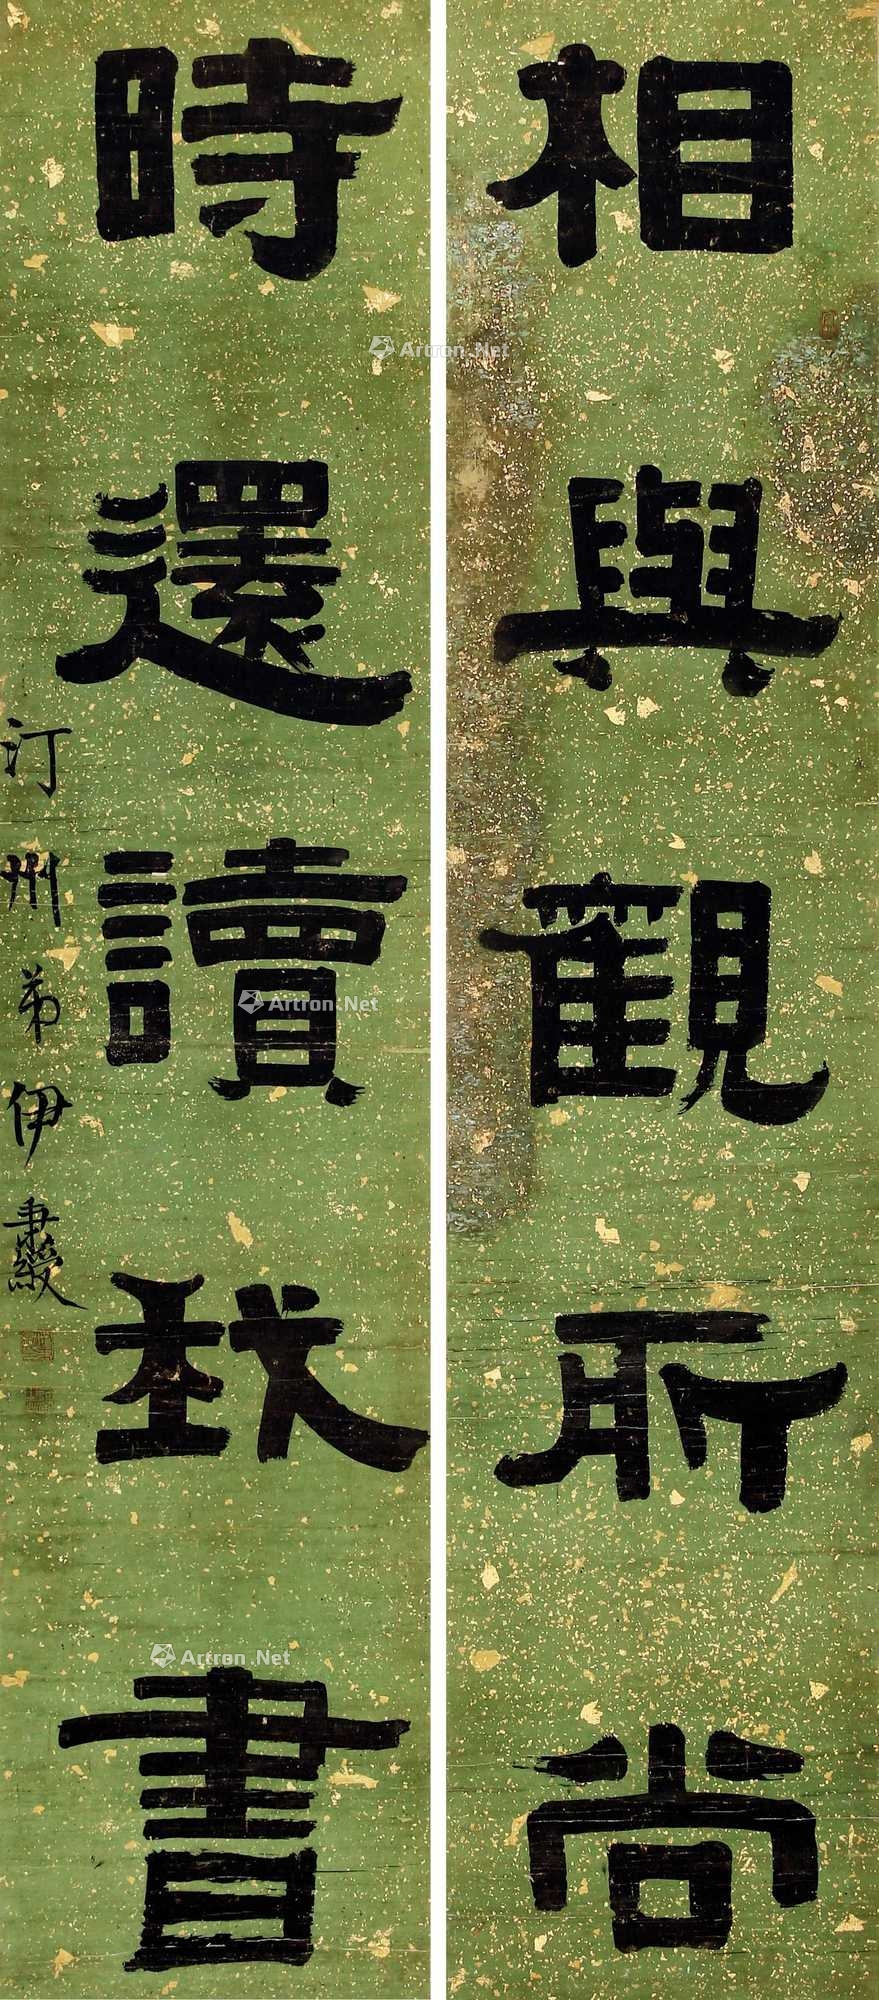 相與觀所尚
時還讀我書
汀州弟伊秉綬
Artron.Net
Artron.Net
Artron.Net